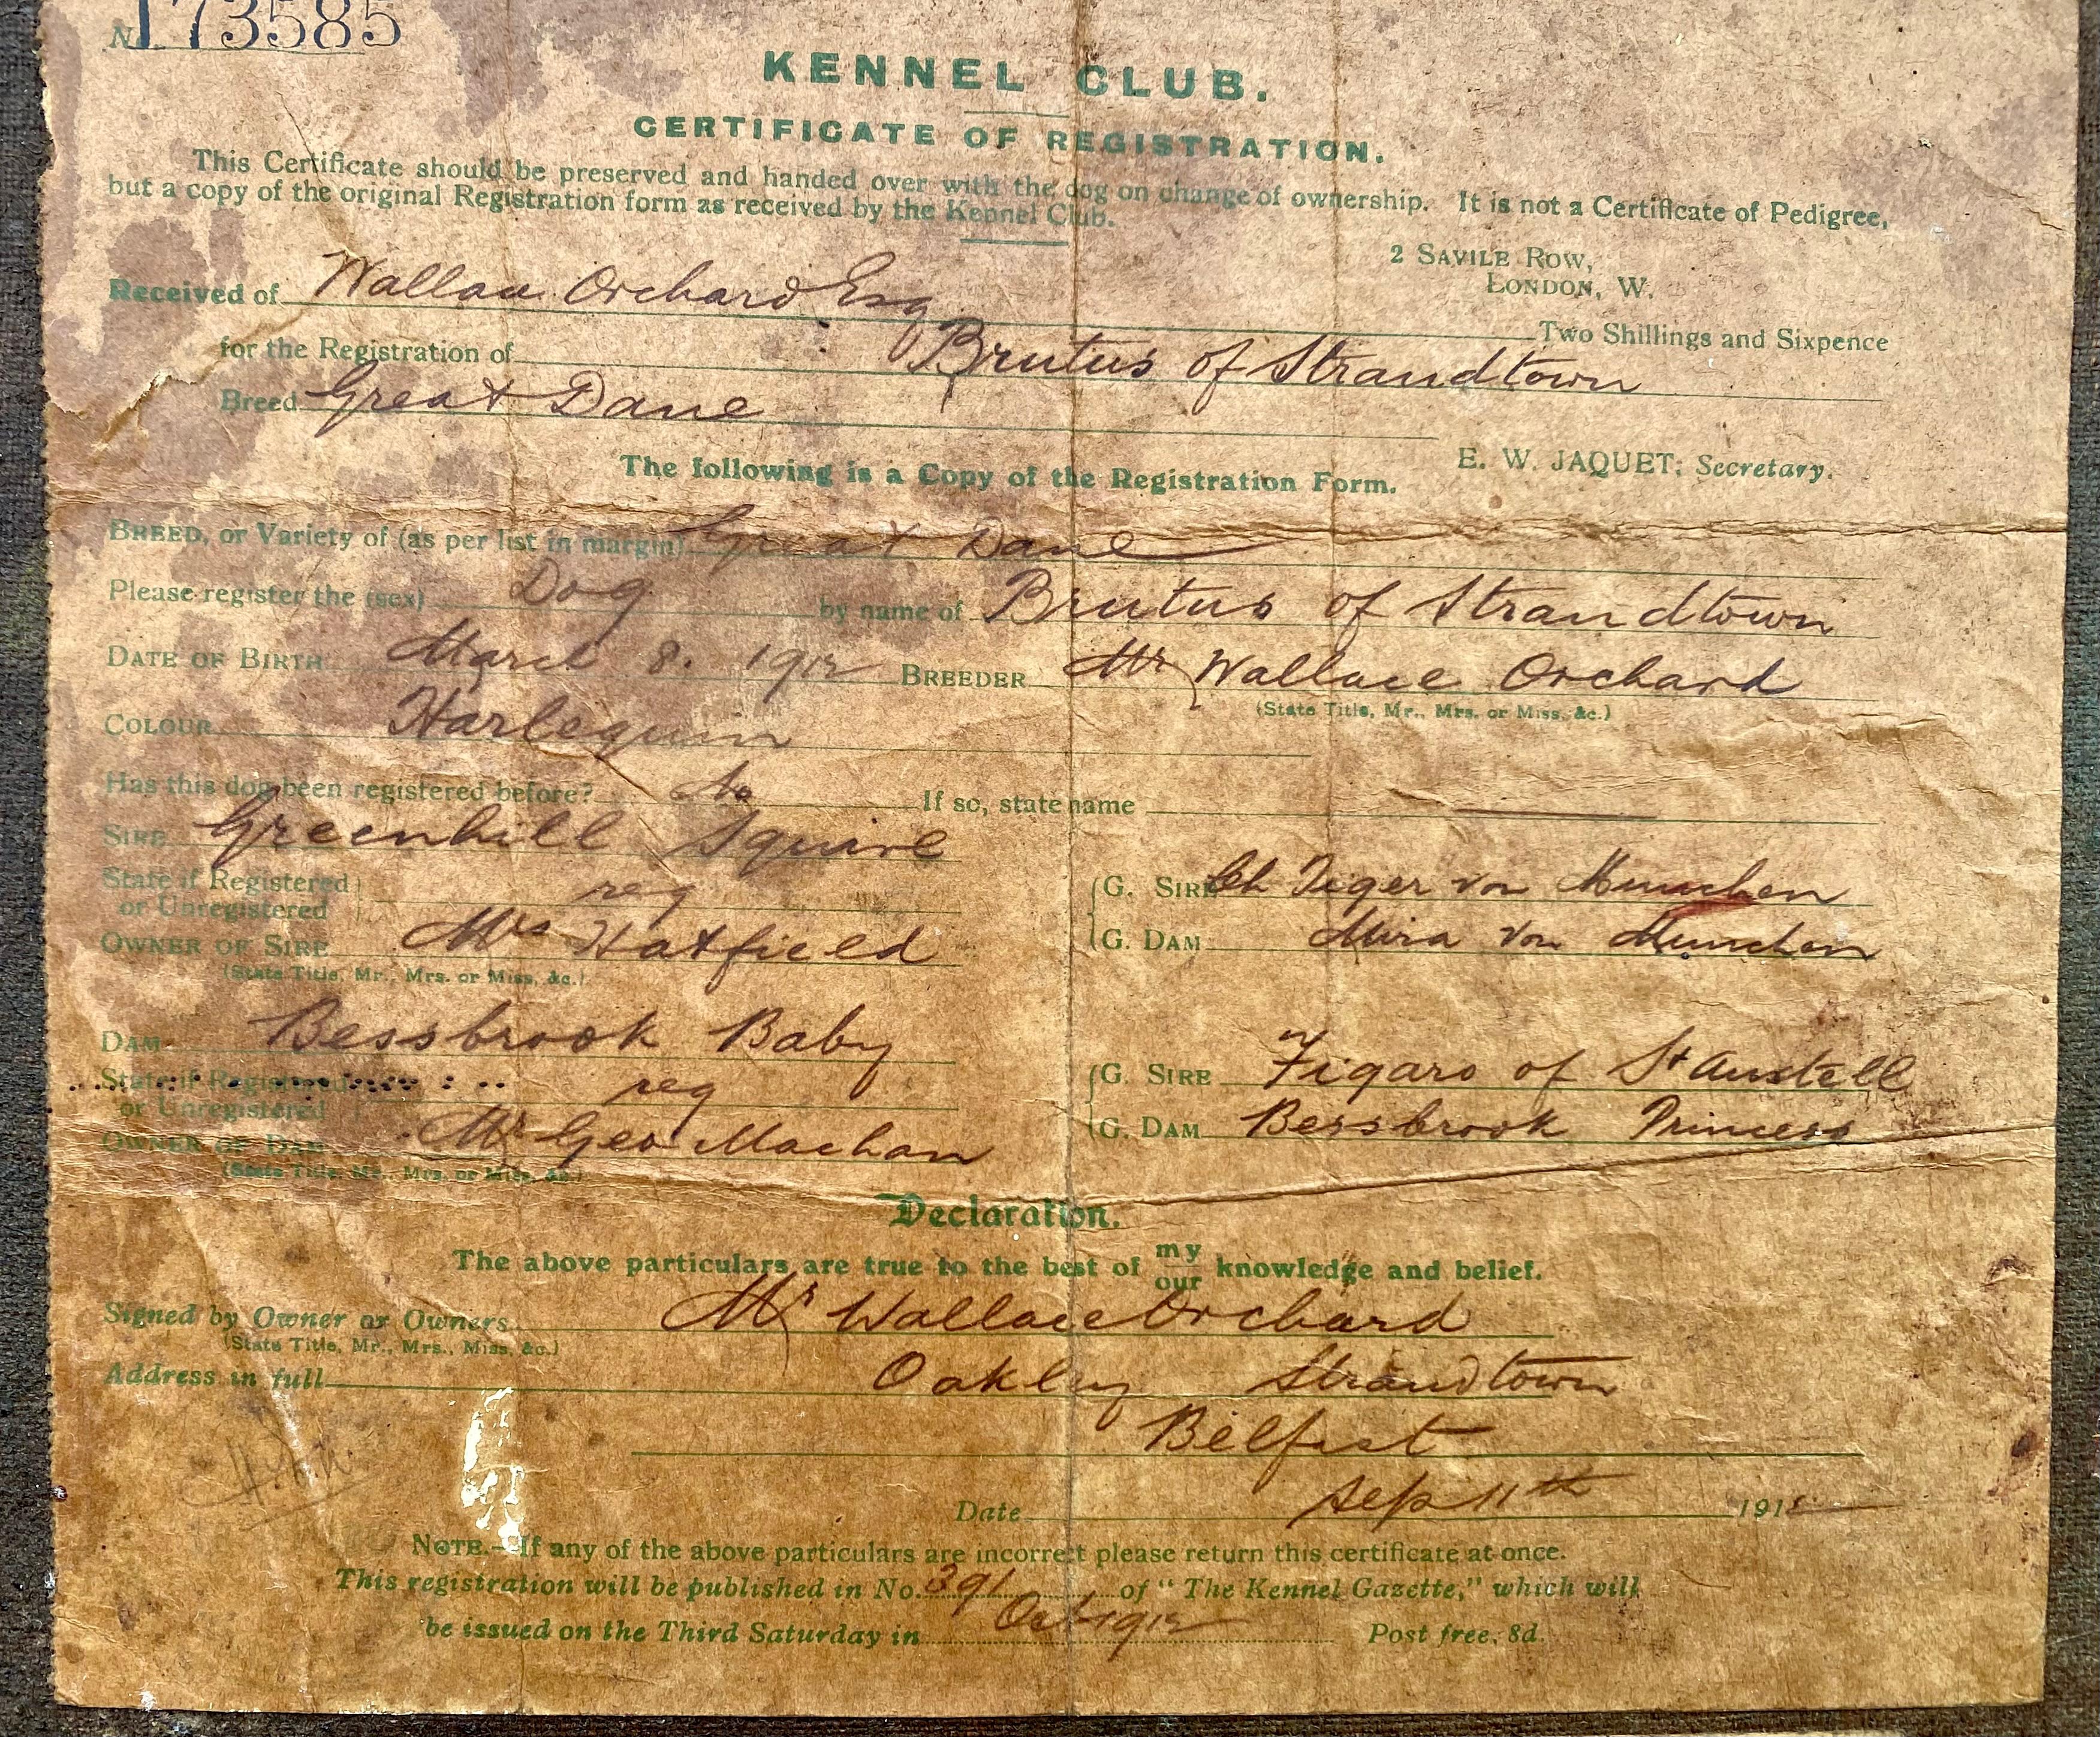 No 173585
KENNEL CLUB.
CERTIFICATE OF REGISTRATION.
This Certificate should be preserved and handed over with the dog on change of ownership. It is not a Certificate of Pedigree,
but a copy of the original Registration form as received by the Kennel Club.
2 SAVILE ROW,
LONDON, W.
Received of Wallace Orchard Esq Two Shillings and Sixpence
for the Registration of Brutus of Strandtown
Breed Great Dane
E. W. JAQUET, Secretary.
The following is a Copy of the Registration Form.
BREED, or Variety of (as per list in margin) Great Dane
Please register the (sex) Dog by name of Brutus of Strandtown
DATE OF BIRTH March 8. 1912 BREEDER Mr Wallace Orchard
(State Title, Mr., Mrs. or Miss, &c.)
COLOUR Harlequin
Has this dog been registered before? No If so, state name
SIRE Greenhill Squire
State if Registered or Unregistered reg
G. SIRE Ch Tiger von Munchen
OWNER OF SIRE Mrs Hatfield
G. DAM Mira von Munchen
(State Title, Mr., Mrs. or Miss, &c.)
DAM Bessbrook Baby
G. SIRE Figaro of St Austell
State if Registered or Unregistered reg
G. DAM Bessbrook Princess
OWNER OF DAM Mr Geo Machan
(State Title, Mr., Mrs. or Miss, &c.)
Declaration.
The above particulars are true to the best of my our knowledge and belief.
Signed by Owner or Owners Mr Wallace Orchard
(State Title, Mr., Mrs., Miss, &c.)
Address in full Oakley Strandtown
Belfast
Date Sep 11th 1912
NOTE.—If any of the above particulars are incorrect please return this certificate at once.
This registration will be published in No. 391 of "The Kennel Gazette," which will
be issued on the Third Saturday in Oct 1912 Post free, 8d.